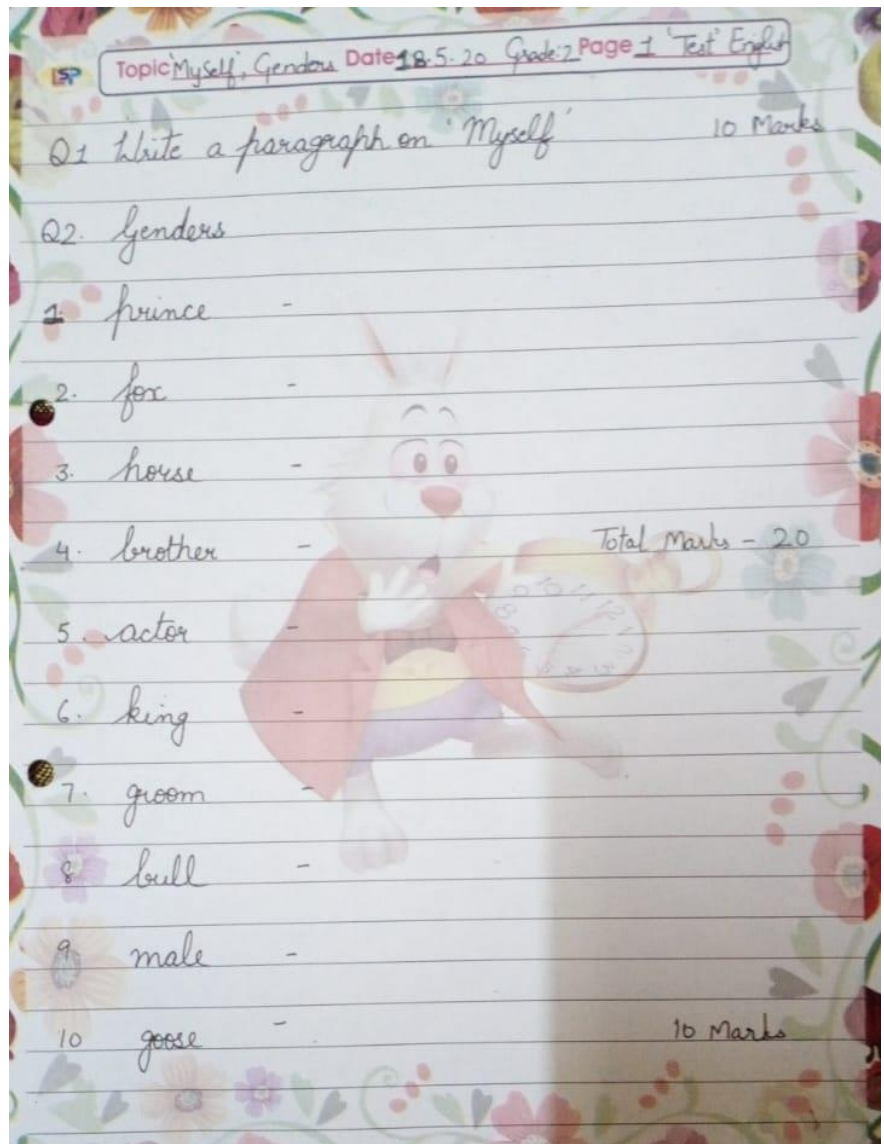 LSP Topic 'Myself', Genders Date 18.5.20 Grade:2 Page 1 'Test' English
Q1 Write a paragraph on 'Myself' 10 Marks
Q2. Genders
1. prince -
2. fox -
3. horse -
4. brother - Total Marks - 20
5. actor -
6. king -
7. groom -
8 bull -
9 male -
10 goose - 10 Marks